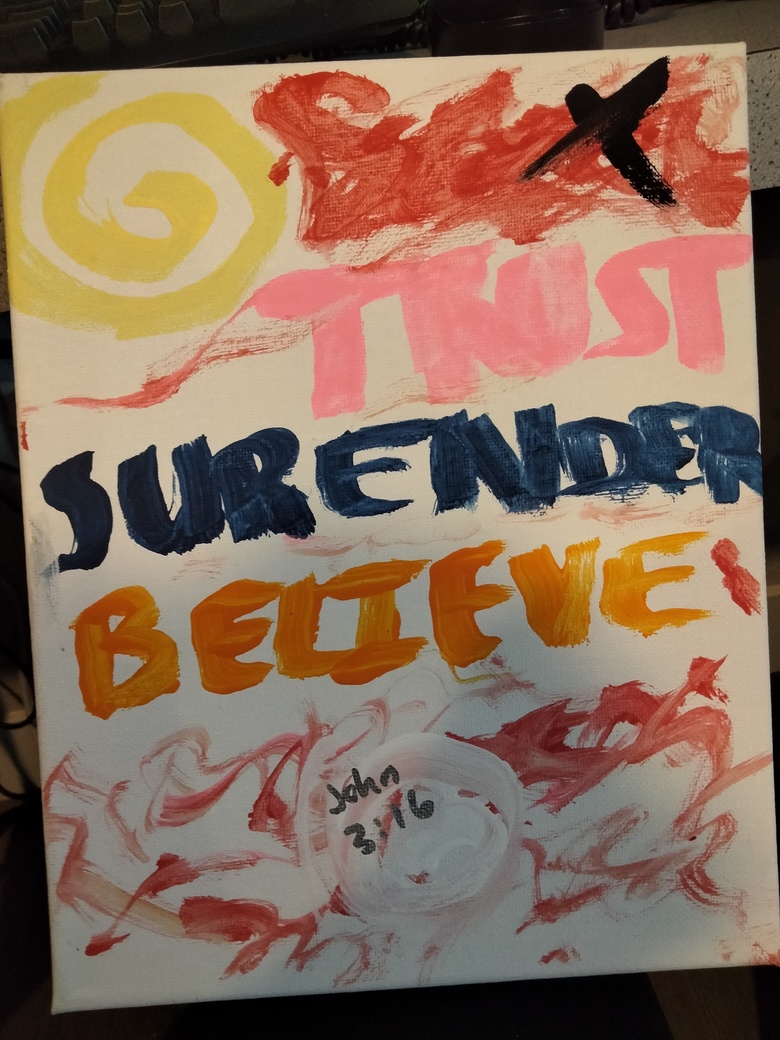 TRUST
SURENDER
BELIEVE
John
3:16